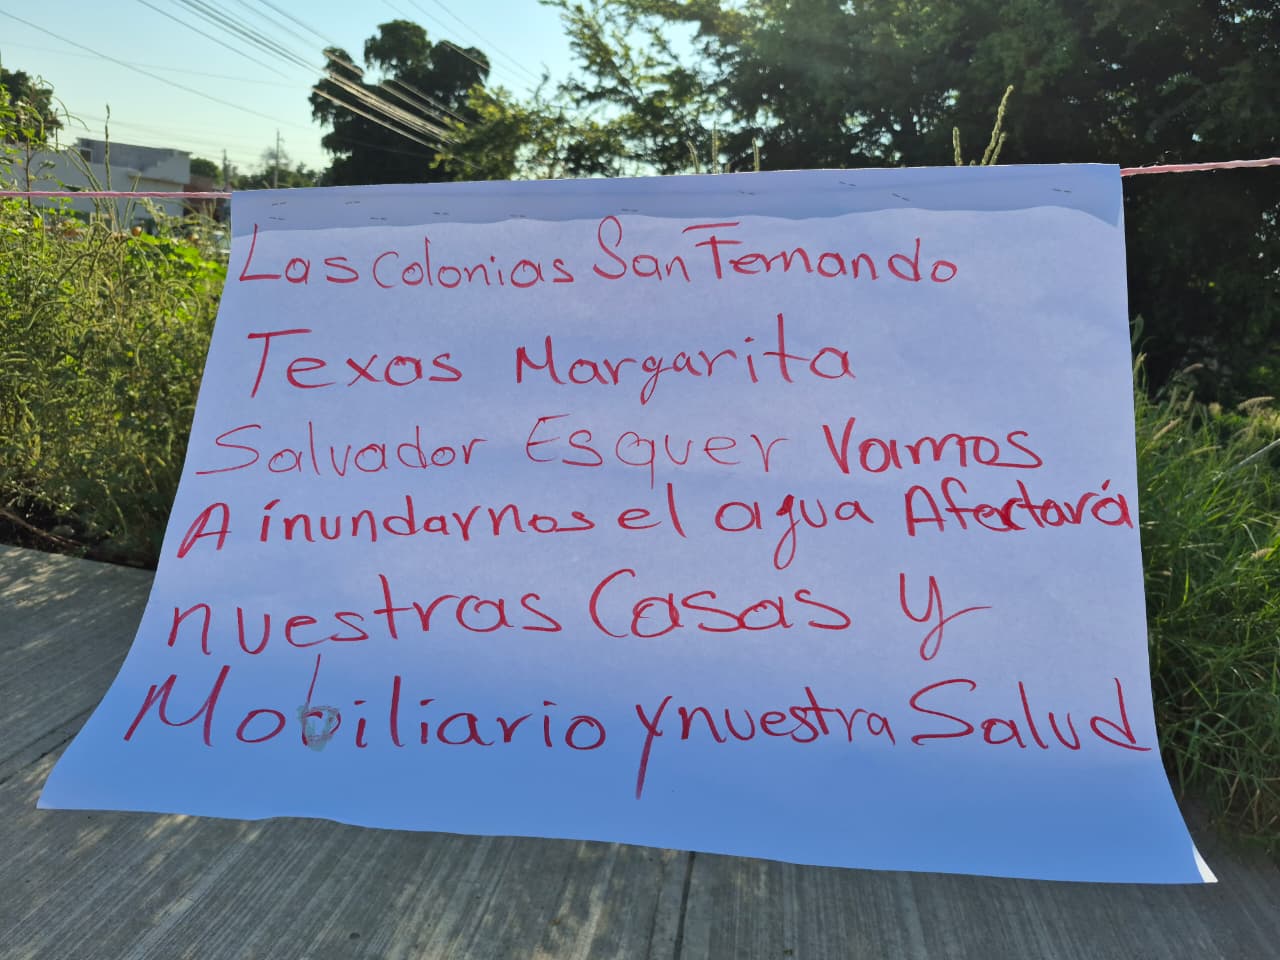 Las Colonias San Fernando
Texas Margarita
Salvador Esquer Vamos
A inundarnos el agua Afectará
nuestras Casas y
Mobiliario y nuestra Salud